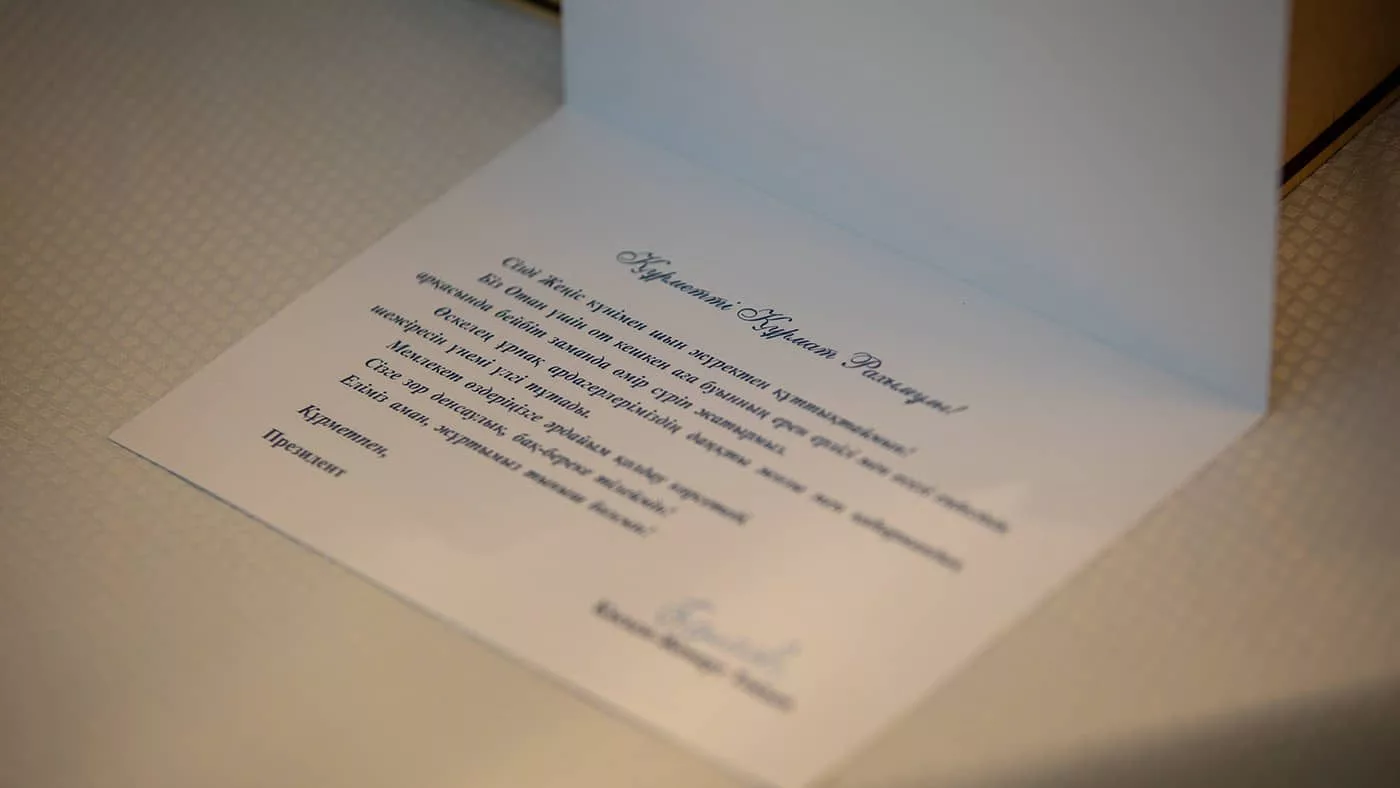 Құрметті Құрмат Рахымұлы!
Сізді Жеңіс күнімен шын жүректен құттықтаймын!
Біз Отан үшін от кешкен аға буынның ерен ерлігі мен өлшеусіз
арқасында бейбіт заманда өмір сүріп жатырмыз.
Өскелең ұрпақ ардагерлеріміздің даңқты жолы мен
шежіресін үнемі үлгі тұтады.
Мемлекет өздеріңізге әрдайым қолдау көрсетеді.
Сізге зор денсаулық, бақ-береке тілеймін!
Еліміз аман, жұртымыз тыныш болсын!
Құрметпен,
Президент